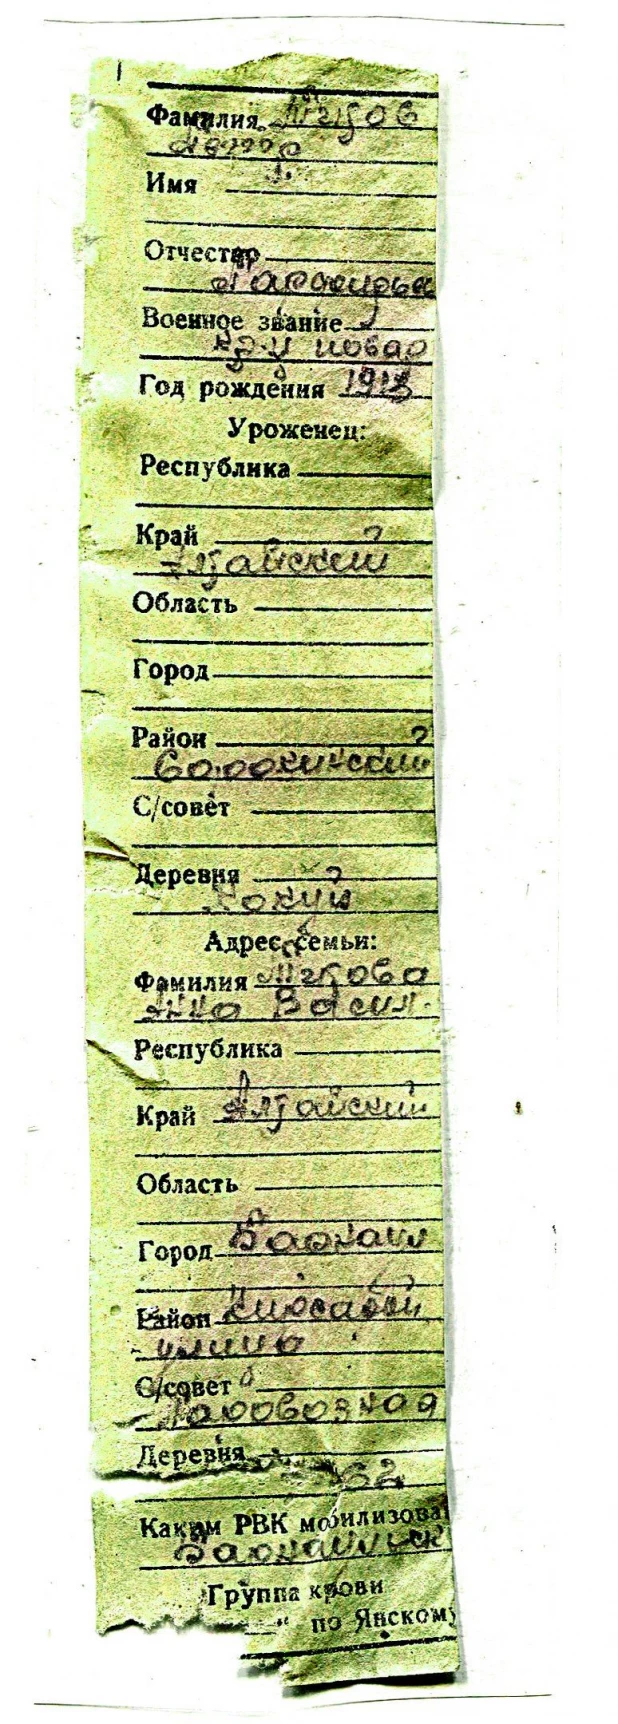 Фамилия Тягов
Имя
Отчество
Военное звание
кр-ц повар
Год рождения 1913
Уроженец:
Республика
Край
Алтайский
Область
Город
Район
Сорокинский
С/совет
Деревня
Кокуй
Адрес семьи:
Фамилия
Анна Васил.
Республика
Край Алтайский
Область
Город Барнаул
Район Кировский
улица
С/совет
Паровозная
Деревня
62
Каким РВК мобилизова
Барнаульск
Группа крови
" по Янскому